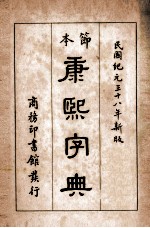 節本
康熙字典
民國紀元三十八年新版
商務印書館發行